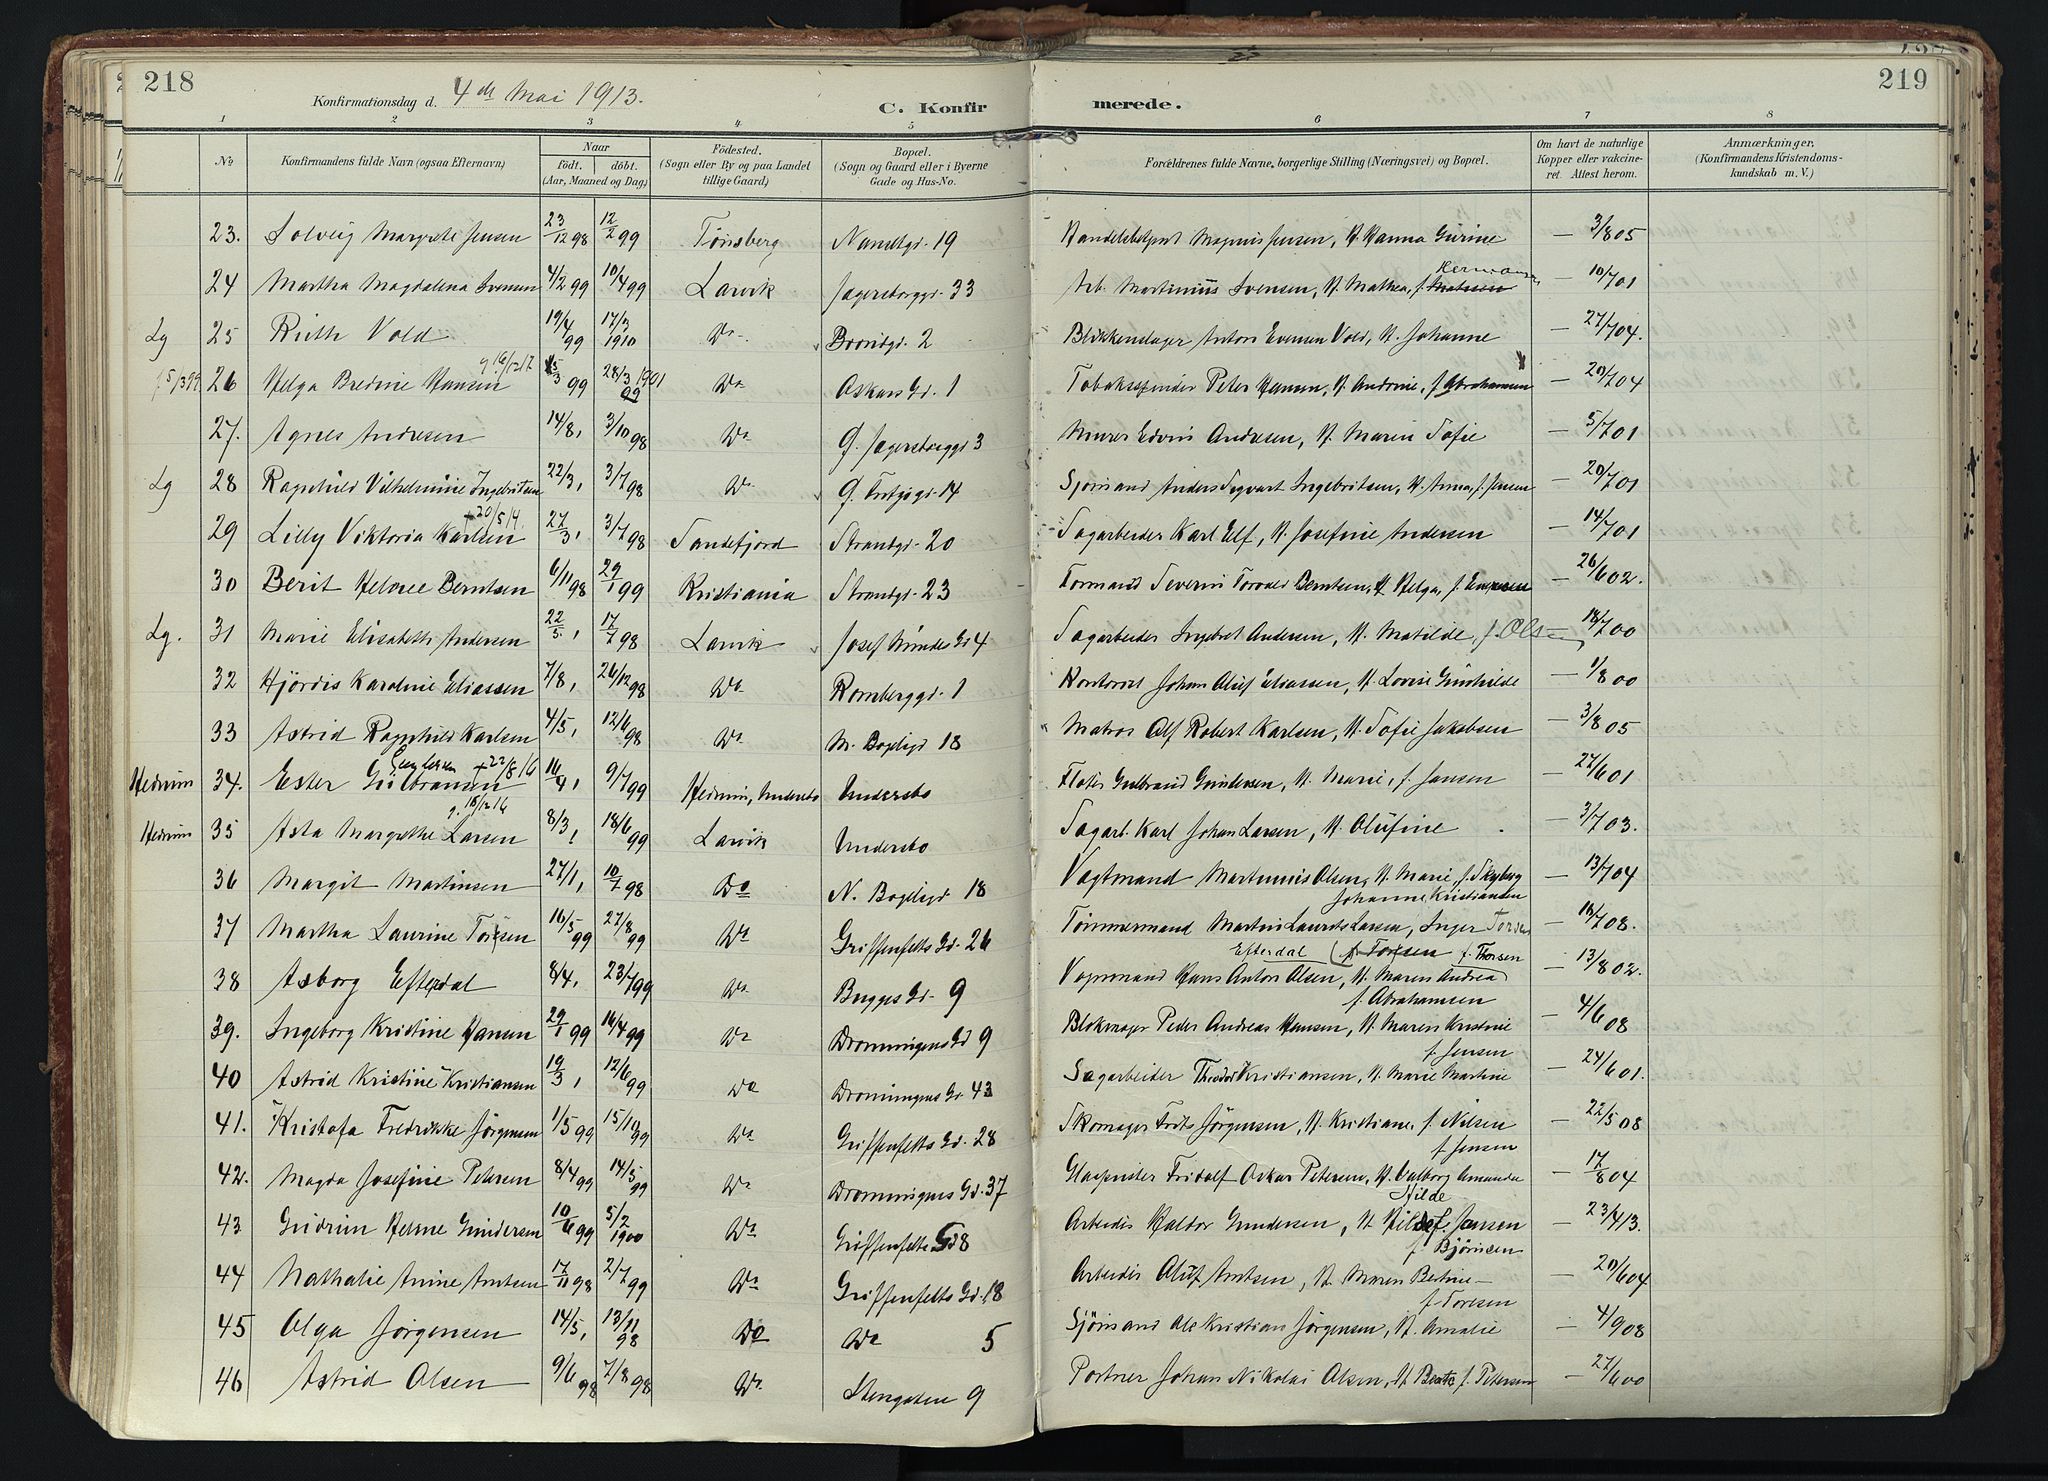 218
Konfirmationsdag d. 4de Mai 1913.
C. Konfirmerede.
219
1 2 3 4 5 6 7 8
No. Konfirmandens fulde Navn (ogsaa Efternavn) Naar født. døbt. (Aar, Maaned og Dag) Fødested. (Sogn eller By og paa Landet tillige Gaard) Bopæl. (Sogn og Gaard eller i Byerne Gade og Hus-No. Forældrenes fulde Navne, borgerlige Stilling (Næringsvei) og Bopæl. Om havt de naturlige Kopper eller vakcineret. Attest herom. Anmærkninger. (Konfirmandens Kristendomskundskab m. V.)
23. Solveig Margrete Jensen 23/12 98 12/2 99 Tönsberg Nansetgd. 19 Magnus Jensen, H. Hanna Gurine — 3/8 05
24 Martha Magdalena Svensen 4/2 99 10/4 99 Larvik Jegersborggd. 33 Arb. Martinius Svensen, H. Mathea, f. Hermansen — 10/7 01
Lg 25 Ruth Vold 19/4 99 17/3 1910 Do Brondgd. 2 Blikkenslager Anton Evensen Vold, H. Johanne — 27/7 04.
f 5/3 99. 26 Helga Bredine Hansen g. 16/12 17 5/3 99 28/3 1901 99 Do Oskars Gd. 1 Tobaksspinder Peter Hansen, H. Andrine, f. Abrahamsen — 20/7 04
27. Agnes Andresen 14/8, 3/10 98 Do G. Jegersborggd 3 Murer Edvin Andresen, H. Maren Sofie — 5/7 01
Lg 28 Ragnhild Vilhelmine Ingebritsen 22/3, 3/7 98 Do G. gd. 14 Sjömand Anders Sigvart Ingebritsen, H. Anna, f. Jensen — 20/7 01
29 Lilly Viktoria Karlsen + 20/5 14. 27/3, 3/7 98 Sandefjord Strandgd. 20 Sagarbeider Karl Elf, H. Josefine Andersen — 14/7 01
30 Berit Helene Berntsen 6/11 98 29/1 99 Kristiania Strandgd. 23 Formand Severin Torvald Berntsen, H. Helga, f. — 26/6 02.
Lg. 31 Marie Elisabeth Andersen 22/5, 17/7 98 Larvik Josef Gd 4 Sagarbeider Ingbret Andersen, H. Matilde, f. Ols — 18/7 00
32 Hjördis Karoline Eliassen 7/8, 26/12 98 Do Rombergd. 1 Kontorist Johan Oluf Eliassen, H. Lovise Gunhilde — 1/8 00
33 Astrid Ragnhild Karlsen 4/5, 12/6 98 Do N. Bögeligd 18 Matros Alf Robert Karlsen, H. Sofie Jakobsen — 3/8 05
Hedrum 34. Ester Gulbransen Gundersen + 22/8 16 16/4, 9/7 99 Hedrum, Undersbo Undersbo Fløter Gulbrand Gundersen, H. Marie, f. Jansen — 27/6 01
Hedrum 35 Asta Margrethe Larsen g. 18/12 16 8/3, 18/6 99 Larvik Undersbo Sagarb. Karl Johan Larsen, H. Olufine — 3/7 03.
36 Margit Martinsen 27/1, 10/7 98 Do N. Bögeligd 18 Vagtmand Martinius Olsen, H. Marie, f. Skyberg — 13/7 04
Johanne Kristiansen
37 Martha Laurine Torsen 16/5 99 27/8 99 Do Griffenfelts Gd. 26 Tømmermand Martin Laurits Larsen, Inger — 16/7 08.
Efterdal f. Torsen f. Thorsen
38 Asborg Efterdal 8/4, 23/7 99 Do Bugges Gd. 9 Vognmand Hans Anton Olsen, H. Maren Andrea — 13/8 02.
f. Abrahamsen
39. Ingeborg Kristine Hansen 29/1 99 16/4 99 Do Dronningens Gd 9 Blokmager Peder Andreas Hansen, H. Maren Kristine — 4/6 08
f. Jensen
40 Astrid Kristine Kristiansen 19/3, 12/6 99 Do Dronningens Gd. 43 Sagarbeider Theodor Kristiansen, H. Marie Martine — 24/6 01.
41. Kristofa Fredrikke Jörgensen 1/5 99 15/10 99 Do Griffenfelts Gd. 28 Skomager Frits Jörgensen, H. Kristiane, f. Nilsen — 22/5 08
f. Jensen
42. Magda Josefine Petersen 8/4 99 14/5 99 Do Dronningens Gd. 37 Glaspuster Fridolf Oskar Petersen, H. Valborg Amanda — 17/8 04
Hilde
43 Gudrun Helene Gundersen 10/6 99 5/2 1900 Do Griffenfelts Gd 8 Arbeider Haldor Gundersen, H. f. Jansen — 23/4 13.
f. Björnsen
44 Nathalie Anine Arntsen 17/11 98 2/7 99 Do Griffenfelts Gd. 18 Arbeider Oluf Arntsen, H. Maren Betine — 20/6 04
f. Toresen
45 Olga Jörgensen 14/5, 13/11 98 Do Do 5 Sjömand Ole Kristian Jörgensen, H. Amalie — 4/9 08
46 Astrid Olsen 9/6 98 7/8 98 Do Stengaten 9 Portner Johan Nikolai Olsen, H. Beate f. Petersen — 27/6 00